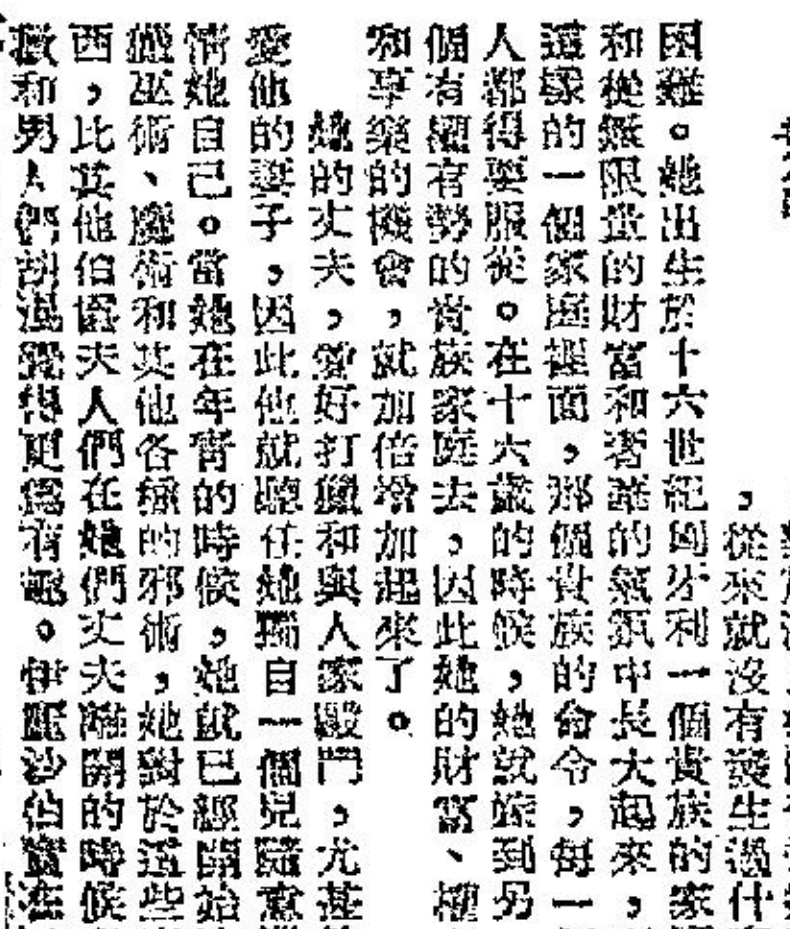 ，從來就沒有發生過什
困難。她出生於十六世紀匈牙利一個貴族的家
和從無限量的財富和奢華的氣氛中長大起來，
這樣的一個家庭裡面，那個貴族的命令，每一
人都得要服從。在十六歲的時候，她就嫁到另
個有權有勢的貴族家庭去，因此她的財富、權
和享樂的機會，就加倍增加起來了。
她的丈夫，愛好打獵和與人家毆鬥，尤甚
愛他的妻子，因此他就聽任她獨自一個兒隨意
情她自己。當她在年青的時候，她就已經開始
巫術、魔術和其他各種的邪術，她對於這些
西，比其他伯爵夫人們在她們丈夫離開的時候
和男人們胡混覺得更為有趣。伊麗沙伯實在